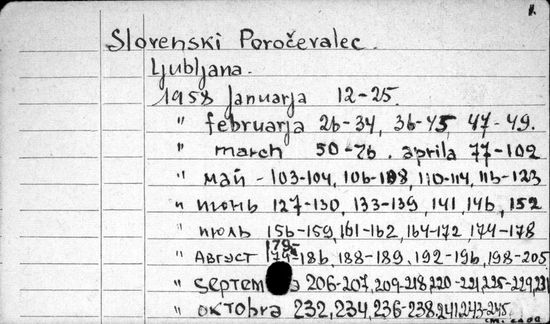 1.
Slovenski Poročevalec.
Ljubljana.
1958 Januarja 12-25.
" februarja 26-34, 36-45, 47-49.
" march 50-76. aprila 77-102
" май - 103-104, 106-108, 110-114, 116-123
" июнь 127-130, 133-139, 141, 146, 152
" июль 156-159, 161-162, 164-172, 174-178
" Август 179-186, 188-189, 192-196, 198-205
" septem a 206-207, 209-218, 220-221, 225-229, 231
" октobra 232, 234, 236-238, 241, 243-245.